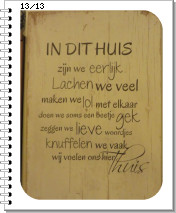 13/13
IN DIT HUIS
zijn we eerlijk.
Lachen we veel
maken we lol met elkaar
doen we soms een beetje gek
zeggen we lieve woordjes
knuffelen we vaak
wij voelen ons hier
thuis